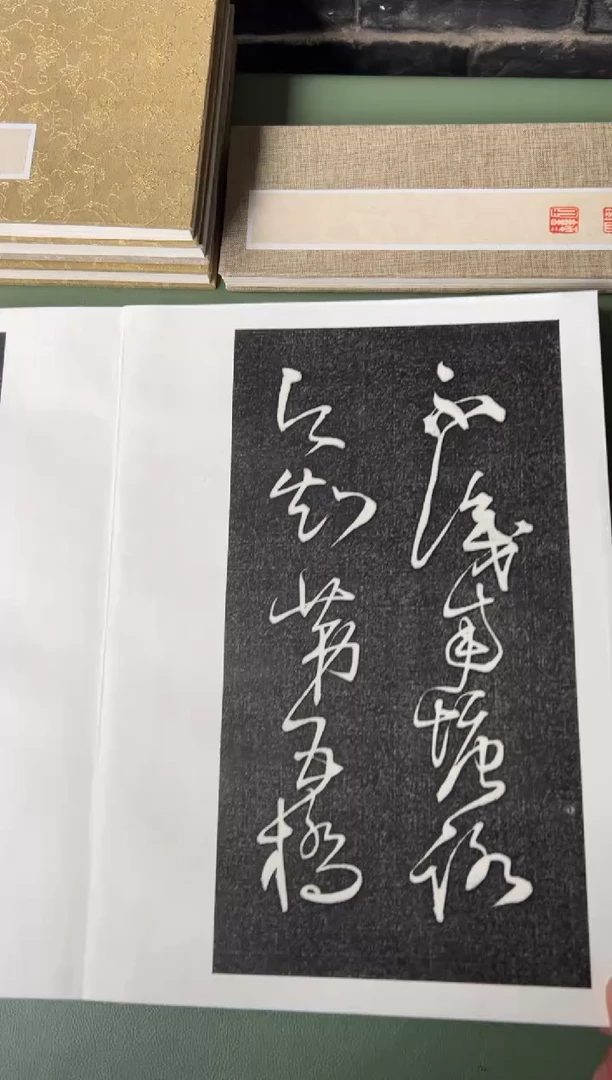 不识南塘路
今知第五桥